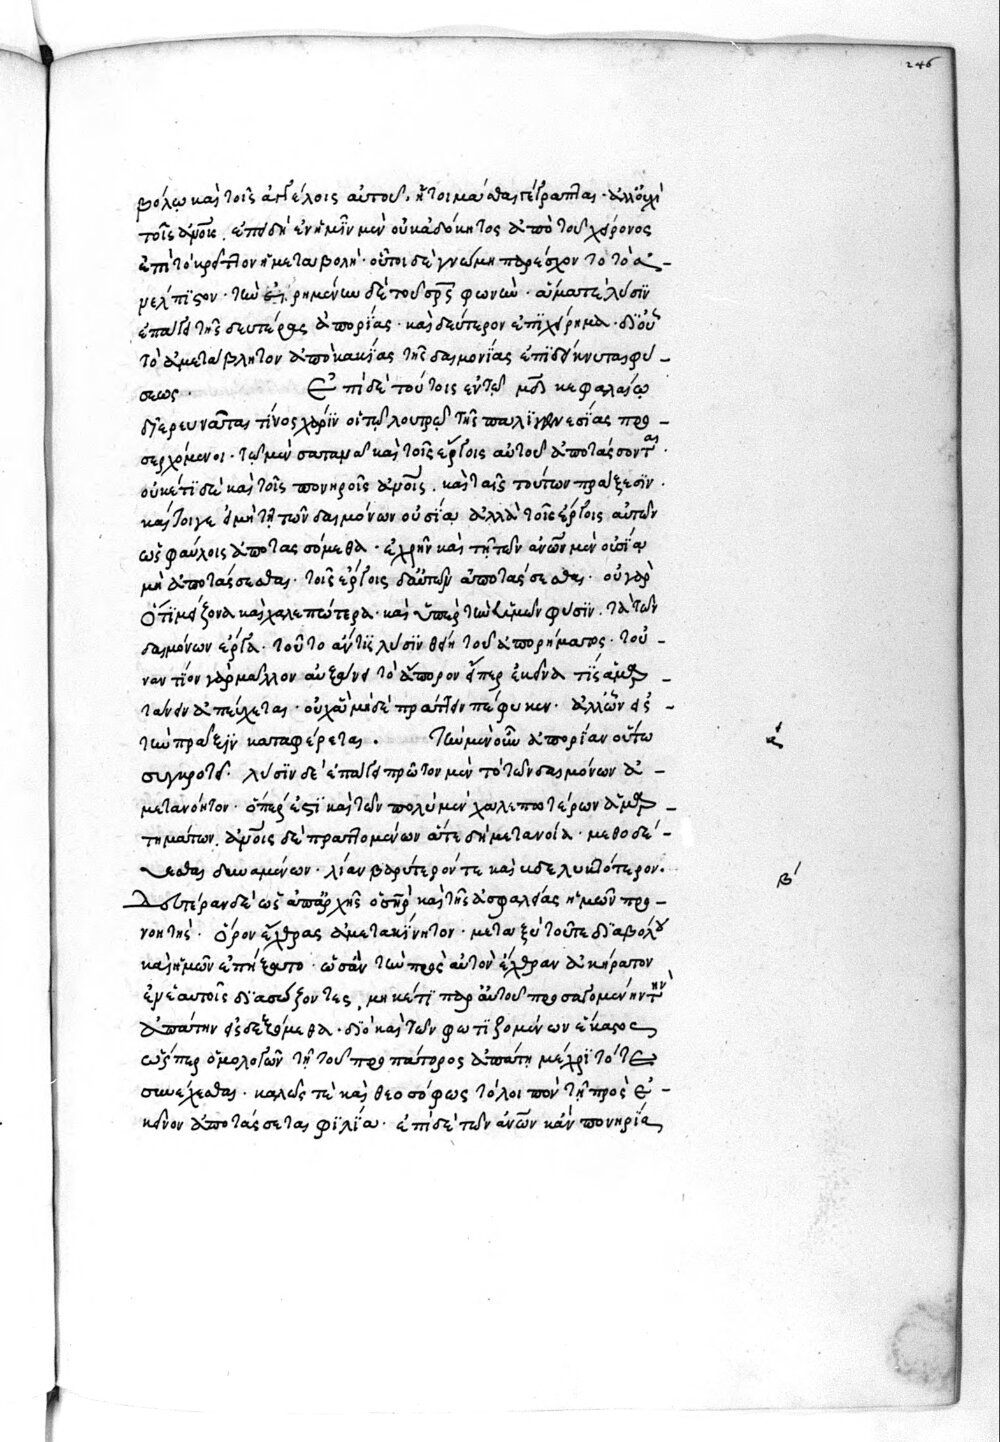 246
βόλῳ καὶ τοῖς ἀγγέλοις αὐτοῦ, ἡτοιμάσθαι γέγραπται· ἀλλ' οὐχὶ
τοῖς ἀνοις. ἐπειδὴ ἐν ἡμῖν μὲν οὐκ ἀδόκητος ἀπὸ τοῦ χείρονος
ἐπὶ τὸ κρεῖττον ἡ μεταβολή· οὗτοι δὲ γνώμῃ παρέσχον τοῦτο ἀ-
μελπιστον· τῶν εἰρημένων δὲ τοῦ πρς φωνῶν· ἅμα τε λύσιν
ἐπάγει τῆς δευτέρας ἀπορίας· καὶ δεύτερον ἐπιχείρημα· δι' οὗ
τὸ ἀμετάβλητον ἀπὸ κακίας τῆς δαιμονίας ἐπιδείκνυται φύ-
σεως. Ἐπὶ δὲ τούτοις ἐν τῷ κεφαλαίῳ
διερευνᾶται τίνος χάριν οἱ τῷ λουτρῷ τῆς παλιγγενεσίας προ-
σερχόμενοι· τῷ μὲν σατανᾷ καὶ τοῖς ἔργοις αὐτοῦ ἀποτάσσονται·
οὐκέτι δὲ καὶ τοῖς πονηροῖς ἀνοις, καὶ ταῖς τούτων πράξεσιν·
καίτοιγε εἰ μὴ τῇ τῶν δαιμόνων οὐσίᾳ ἀλλὰ τοῖς ἔργοις αὐτῶν
ὡς φαύλοις ἀποτασσόμεθα· ἐχρῆν καὶ τῇ τῶν ἀνων μὲν οὐσίᾳ
μὴ ἀποτάσσεσθαι· τοῖς ἔργοις δ' αὐτῶν ἀποτάσσεσθαι· οὐ γὰρ
ὅτι μείζονα καὶ χαλεπώτερα· καὶ ὑπὲρ τὴν ἡμῶν φύσιν· τὰ τῶν
δαιμόνων ἔργα· τοῦτο ἀντὶ λύσιν θείη τοῦ ἀπορήματος· τοὐ-
ναντίον γὰρ μᾶλλον αὐξάνει τὸ ἄπορον εἴπερ ἐκεῖνα τίς ἁμαρ-
τάνειν ἀπείχεται· οὐχ ἃ μηδὲ πράττειν πέφυκεν· ἀλλ' ὧν εἰς
τὴν πρᾶξιν καταφέρεται. Τὴν μὲν οὖν ἀπορίαν οὕτω
συγκροτεῖ· λύσιν δὲ ἐπάγει πρῶτον μὲν τὸ τῶν δαιμόνων ἀ-
μετανόητον· ὅπερ ἐστὶ καὶ τῶν πολὺ μὲν χαλεπωτέρων ἁμαρ-
τημάτων, ἀνοις δὲ πραττομένων ἅτε δὴ μετανοίᾳ· μεθοδεύ-
εσθαι δυναμένων· λίαν βαρύτερόν τε καὶ βδελυκτότερον.
Δευτέραν δὲ ὡς ἀπ' ἀρχῆς ὁ σηρ καὶ τῆς ἀσφαλείας ἡμῶν προ-
νοητής· ὅρον ἔχθρας ἀμετακίνητον· μεταξὺ τοῦ τε διαβόλου
καὶ ἡμῶν ἐπήξατο· ὡς ἂν τὴν πρὸς αὐτὸν ἔχθραν ἀκήρατον
ἐν ἑαυτοῖς διασώζοντες, μηκέτι παρ' αὐτοῦ προσαγομένην τὴν
ἀπάτην εἰσδεξώμεθα· διὸ καὶ τῶν φωτιζομένων ἕκαστος
ὥσπερ ὁμολογῶν τῇ τοῦ προπάτορος ἀπάτῃ μέχρι τότε
συνέχεσθαι· καλῶς τε καὶ θεοσόφως τὸ λοιπὸν τῇ πρὸς ἐ-
κεῖνον ἀποτάσσεται φιλίᾳ· ἐπὶ δὲ τῶν ἀνων κἂν πονηρία
α
β